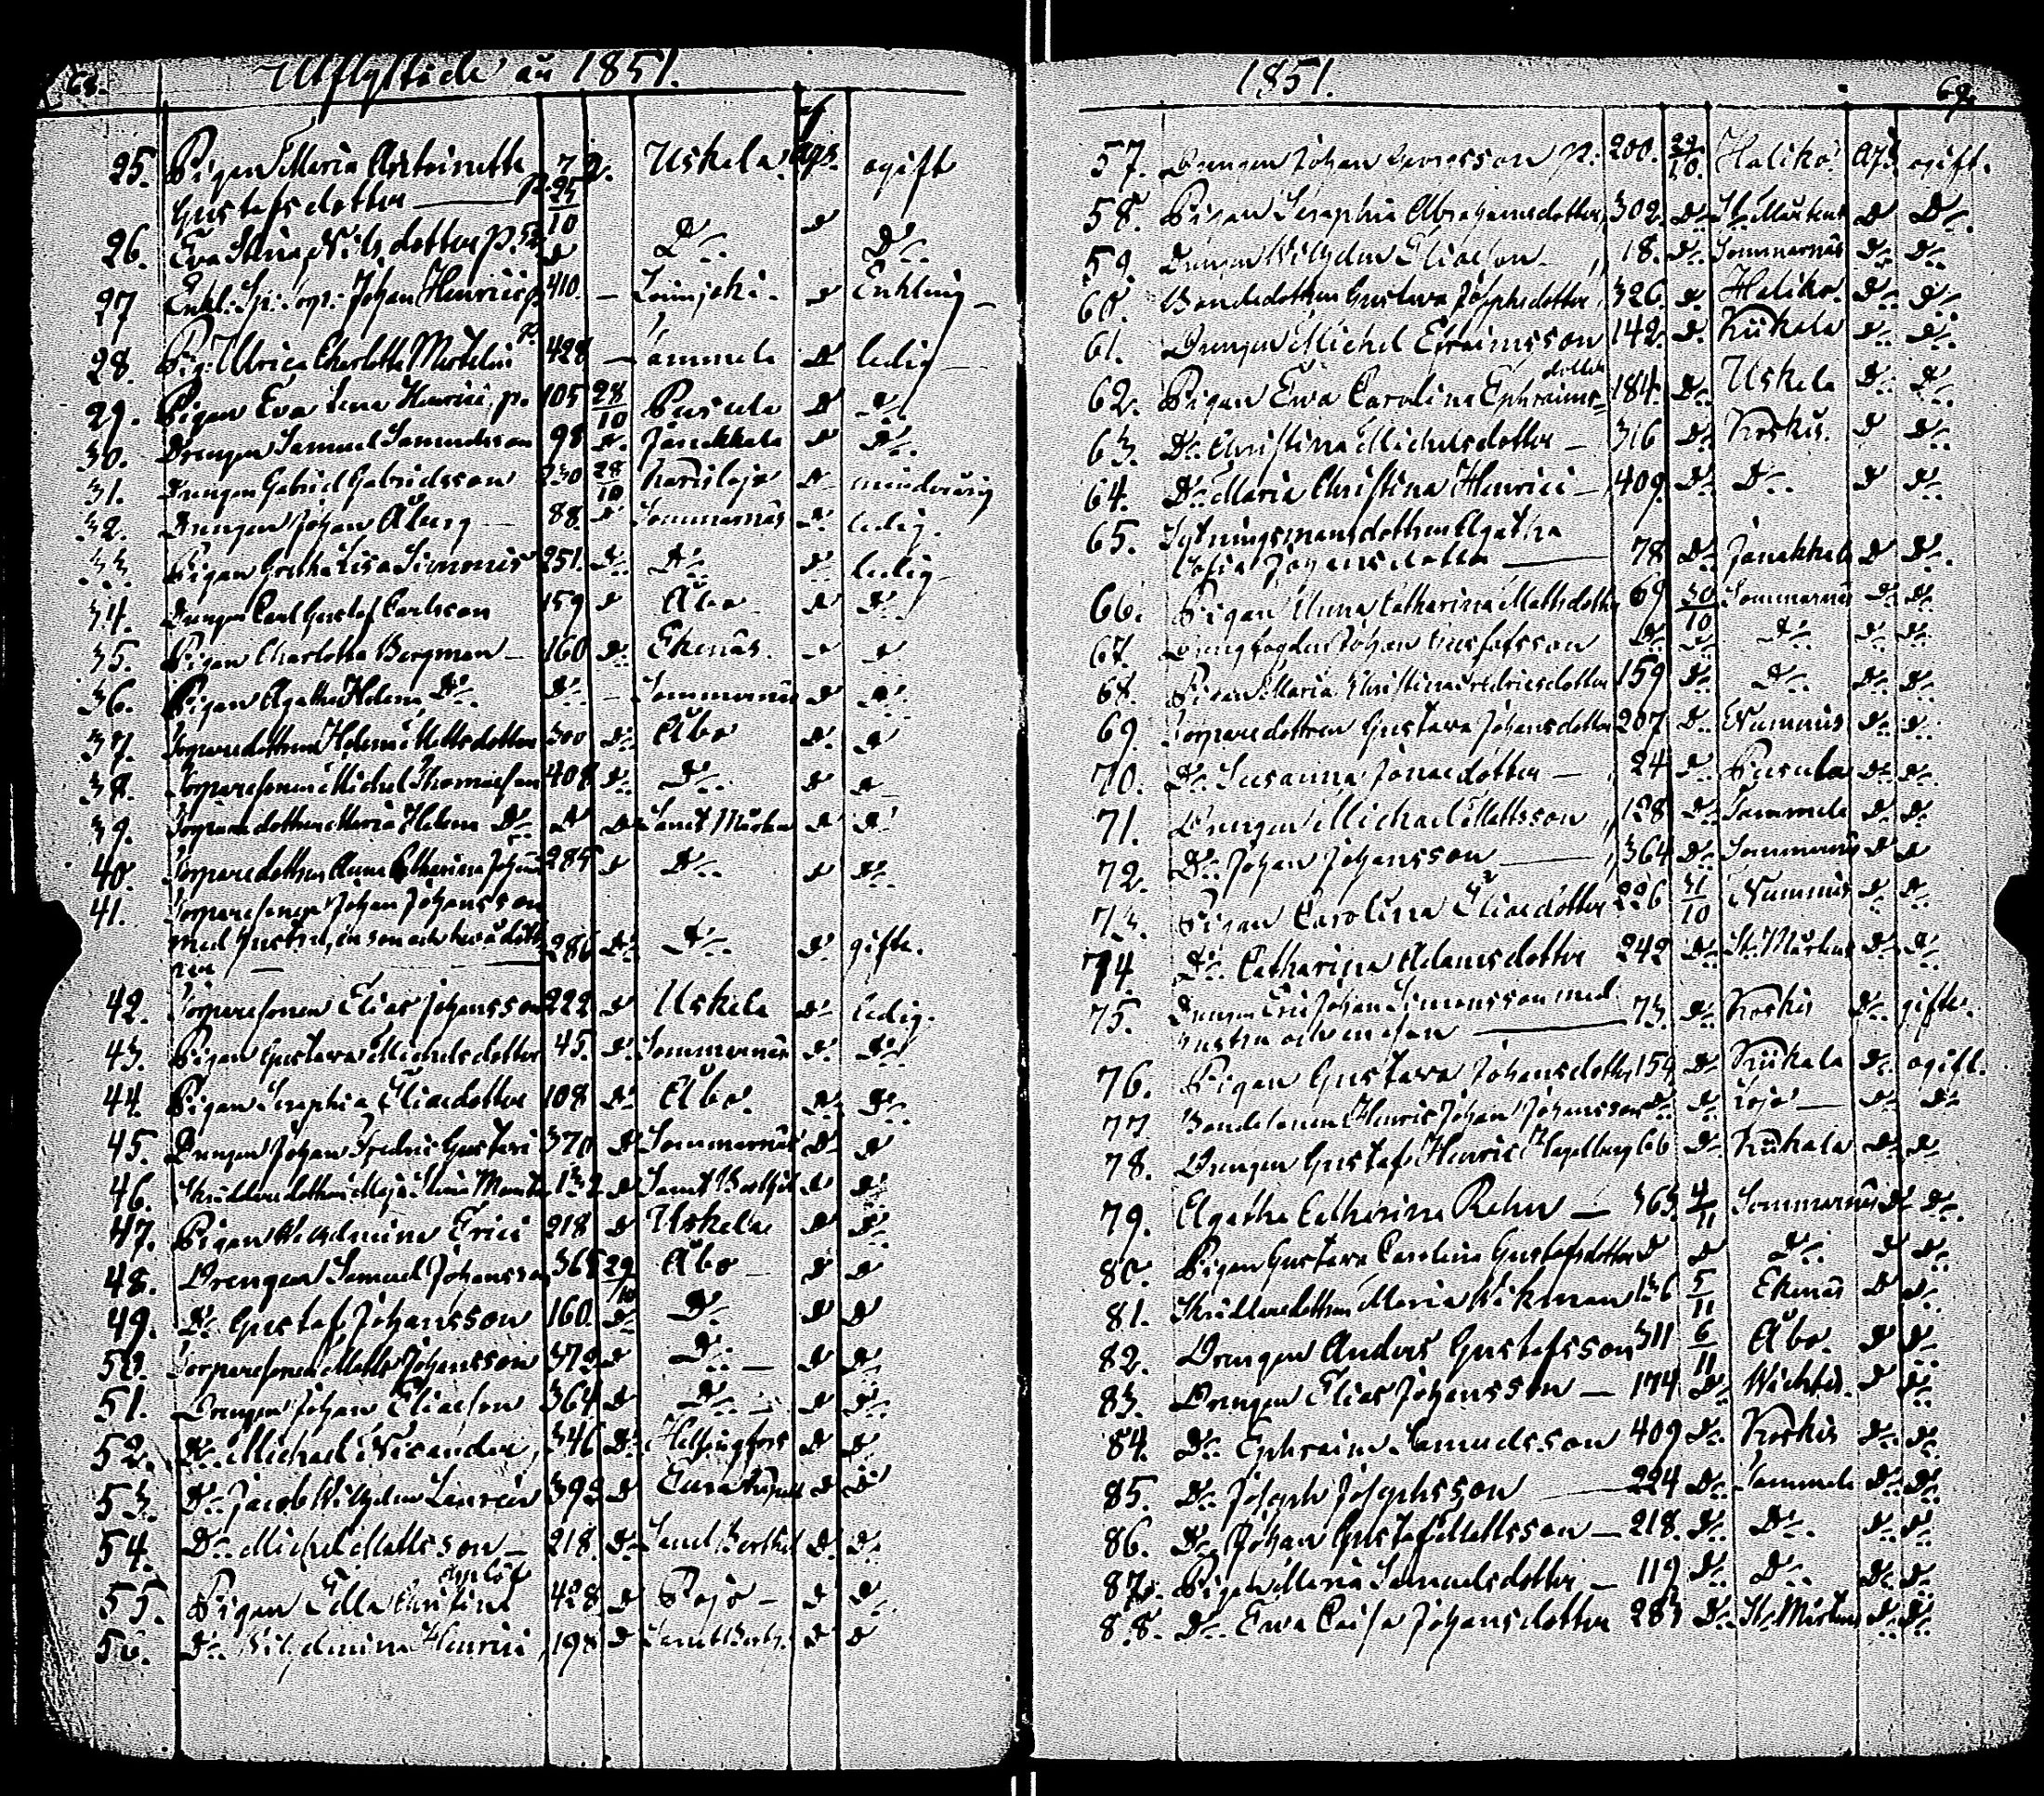 68. Utflyttade år 1851.
25. Pigan Maria Antoinette 72. Uskela. ogift
Gustafsdotter — p. 25/10
26. Eva Stina Nilsdotter p. D D:o D D:o
27 Enkl. Johan Henrici p. 410. — Loimjoki. D Enkling
28. Pig. Ulrica Charlotta Martelin p. 428 — Tammela D ledig
29. Pigan Eva Lena Henrici p. 105 28/10 Pusula D D:o
30. Drengen Samuel Samuelsson 98 D. Janakkala D D:o
31. Drengen Gabriel Gabrielsson 230 28/10 Karislojo D minderårig
32. Drengen Johan Åberg — 88. D Sommarnäs D ledig.
33 Pigan Greta Lisa Simonis 251. D:o D:o D:o ledig
34. Drengen Carl Gustaf Carlsson 159 D Åbo D D
35. Pigan Charlotta Bergman — 160 D:o Ekenäs. D D
36. Pigan Agatha Helena D:o D:o — Sommarnäs D D:o
37. Torparedottren Helena Mattsdotter 300 D:o Åbo D:o D
38. Torparesonen Michel Thomasson 408 D:o D:o D D
39. Torparedottren Maria Helena D:o D D Sanct Mårtens D D
40. Torparedottren Anna Catharina Johans 285 D D:o D D:o
41. Torparesonen Johan Johansson
med hustru, en son och två dött
rar — 286 D:o D:o D gifte.
42. Torparesonen Elias Johansson 222 D Uskela D:o ledig.
43. Pigan Gustava Michelsdotter 45. D. Sommarnäs D. D:o
44. Pigan Seraphia Eliaedotter 108 D:o Åbo. D:o D:o
45. Drengen Johan Fredric Gustavi 370 D Sommarnäs D:o D
46. Skräddaredottren Maja Stina 132 D Sanct Berthil D D:o
47. Pigan Wilhelmina Erici 218 D Uskela D D:o
48. Drengen Samuel Johansson 368 29/10 Åbo — D D
49. D:o Gustaf Johansson 160. D:o D:o D D
50. Torparesonen Matts Johansson 372 D D:o — D D:o
51. Drengen Johan Eliasson 364 D D:o D D:o
52. D:o Michael Nicander 346 D:o Helsingfors D D:o
53. D:o Jacob Wilhelm Lauren 392 D D D
54. D:o Michel Mattsson — 218. D:o Sanct Berthil D:o D:o
55. Pigan Christina 428 D Pojo — D D
56. D:o Wilhelmina Henrici 198 D Sanct Berth. D D
1851. 69.
57. Drengen Johan p. 200. 29/10. Haliko. ogift.
58. Pigan Seraphia Abrahamsdotter 302. D:o St. Mårtens D D:o
59. Drengen Wilhelm Eliasson — 18. D:o Sommarnäs D:o D:o
60. Bondedottren Gustava Josephsdotter 326 D Haliko. D:o D:o
61. Drengen Michel Efraimsson 142. D. Kiikala D:o D:o
62. Pigan Ewa Carolina Ephraims- dotter 184. D:o Uskela D:o D:o
63. D:o Christina Michelsdotter — 316 D:o Koskis. D D:o
64. D:o Maria Christina Henrici — 409. D:o D:o D D:o
65. Sytningsmansdottren Agatha
Johansdotter — 78 D:o Janakkala D D:o
66. Pigan Anna Catharina Mattsdotter 69 30/10 Sommarnäs D:o D:o
67. Drengfogden Johan Gustafsson D:o D:o D:o D:o D:o
68. Pigan Maria Christina Fredricsdotter 159 D:o D:o D:o D:o
69. Torparedottren Gustava Johansdotter 207 D. Nummis D:o D:o
70. D:o Susanna Jonaedotter — 24 D:o Pusula D:o D:o
71. Drengen Michael Mattsson 128 D:o Tammela D:o D:o
72. D:o Johan Johansson — 364 D:o Sommarnäs D:o D
73. Pigan Carolina Eliaedotter 226 31/10 Nummis D:o D:o
74. D:o Catharina Adamsdotter 242 D:o St. Mårtens D:o D:o
75. Drengen Eric Johan Simonsson med
hustru och en son — 73. D:o Koskis D:o gifte.
76. Pigan Gustava Johansdotter 159 D:o Kiikala D:o ogift.
77 Bondesonen Henric Johan Johansson D:o D:o Lojo — D:o D:o
78. Drengen Gustaf Henric Hagelberg 66 D:o Kiikala D:o D:o
79. Agatha Catharina Rehn — 363. 4/11 Sommarnäs D:o D:o
80. Pigan Gustava Carolina Gustafsdotter D D D:o D D:o
81. Skräddaredottren Maria Wikman 136 5/11 Ekenäs D D:o
82. Drengen Anders Gustafsson 311 6/11 Åbo. D D:o
83. Drengen Elias Johansson — 174 D:o Wichtis. D D:o
84. D:o Ephraim Samuelsson 409 D:o Koskis D:o D:o
85. D:o Joseph Josephsson — 224 D:o Tammela D:o D:o
86. D:o Johan Gustaf Mattsson — 218. D:o D:o. D:o D:o
87. Pigan Maria Samuelsdotter — 119 D:o D:o D:o D:o
88. D:o Ewa Caisa Johansdotter 283 D:o St. Mårtens D:o D:o